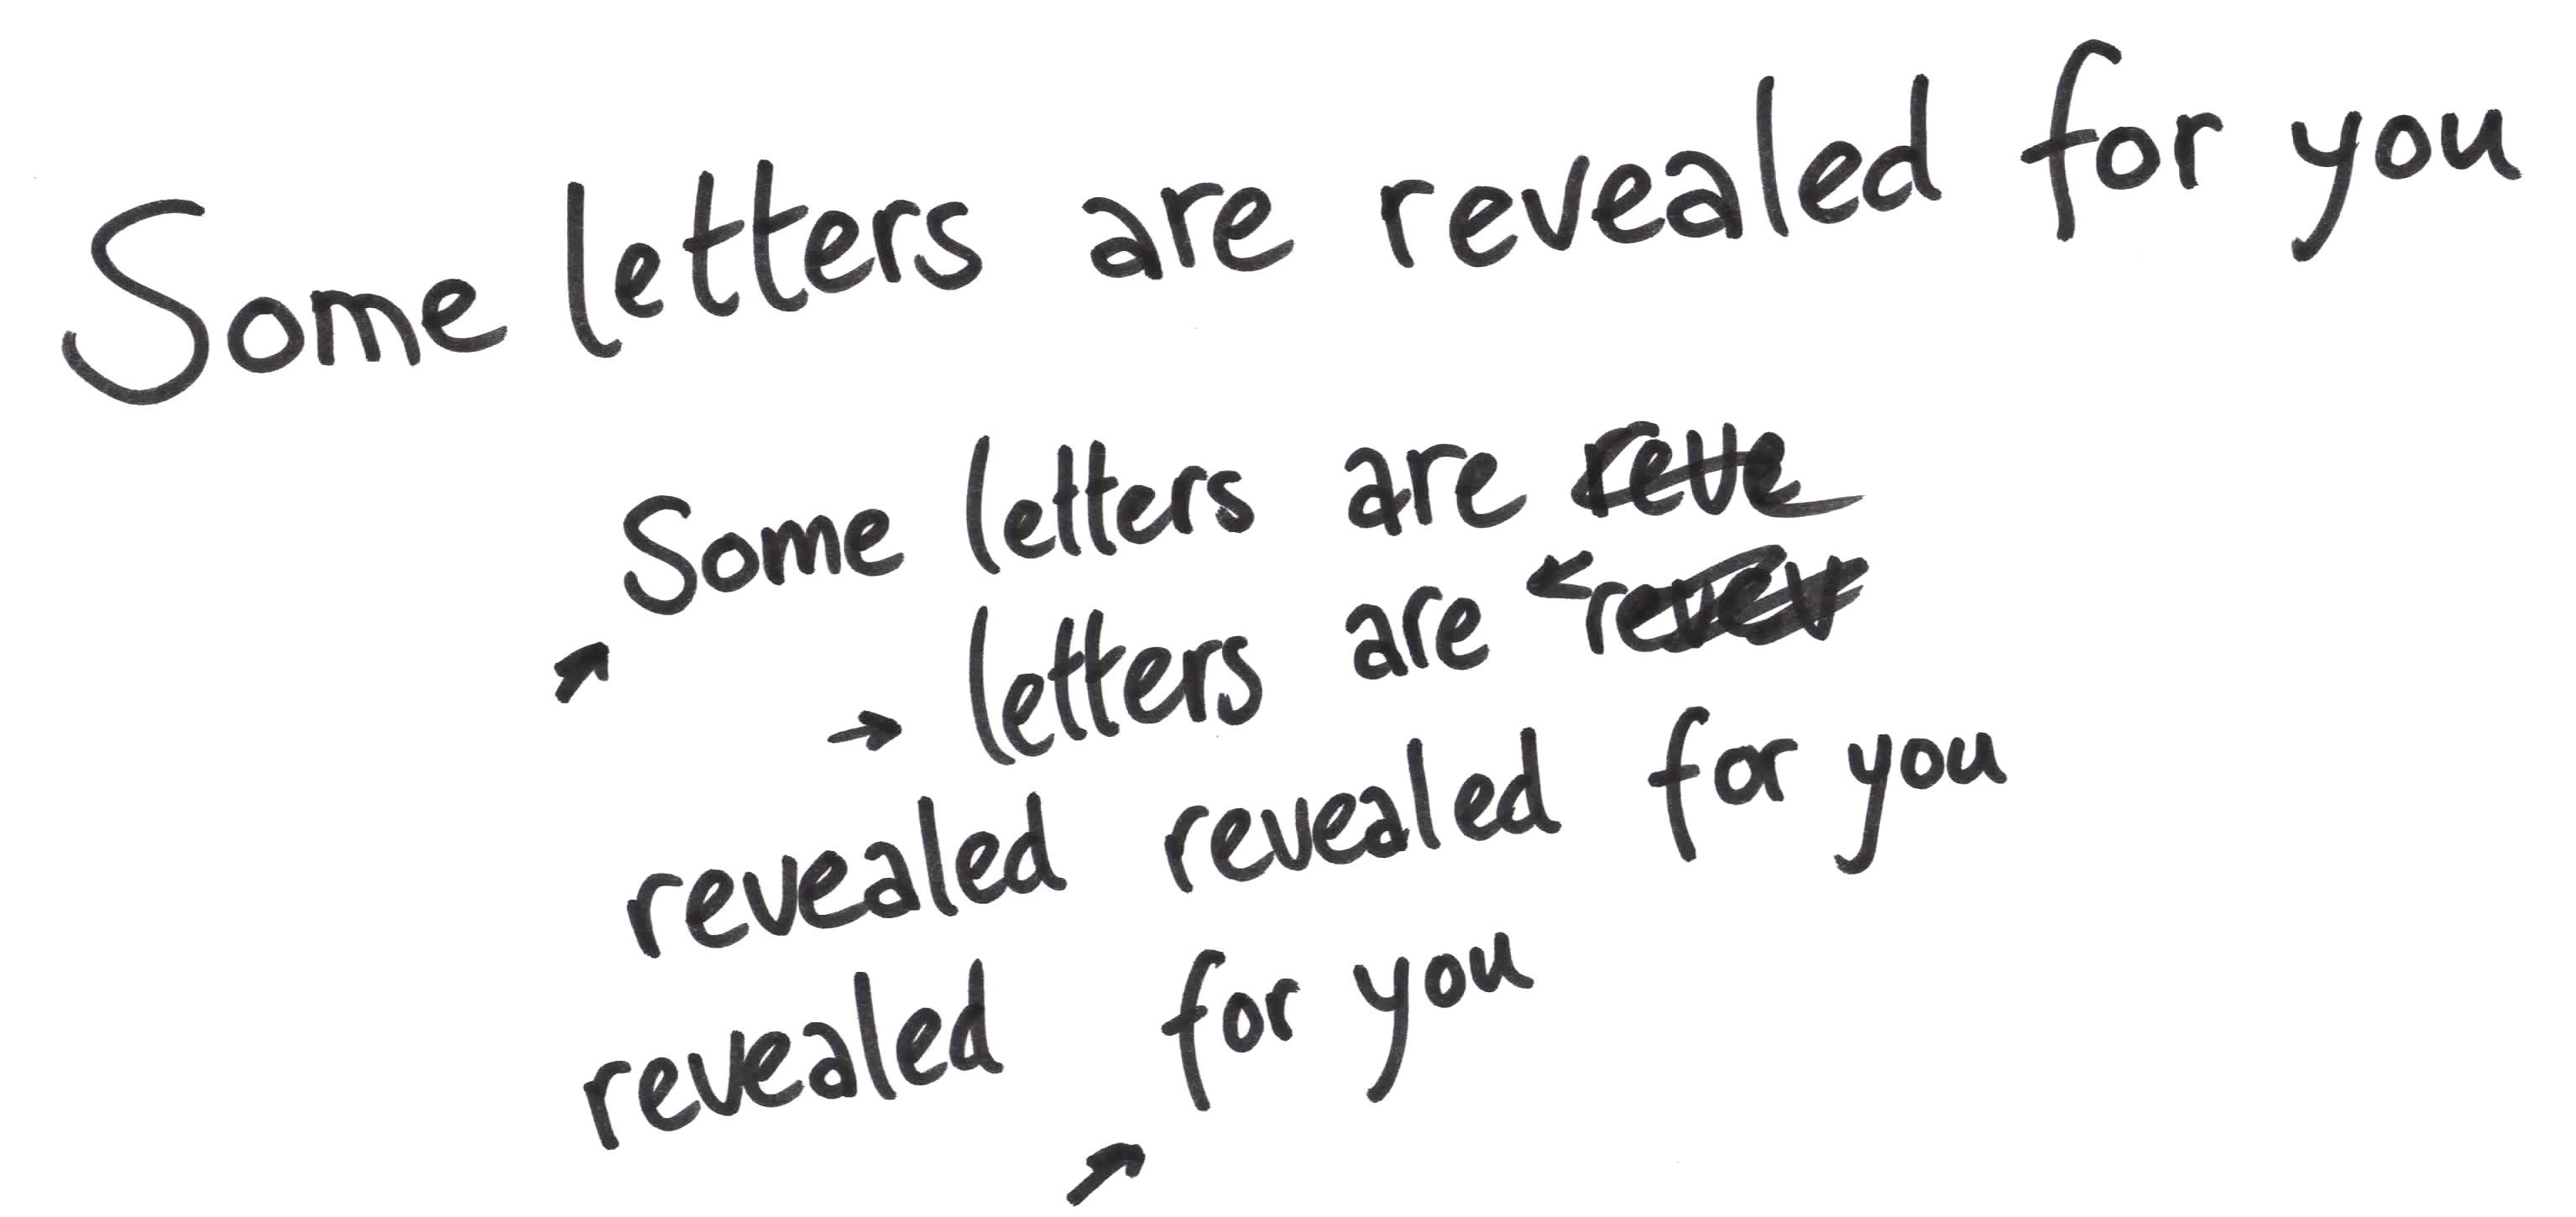 Some letters are revealed for you
Some letters are
letters are
revealed revealed for you
revealed for you